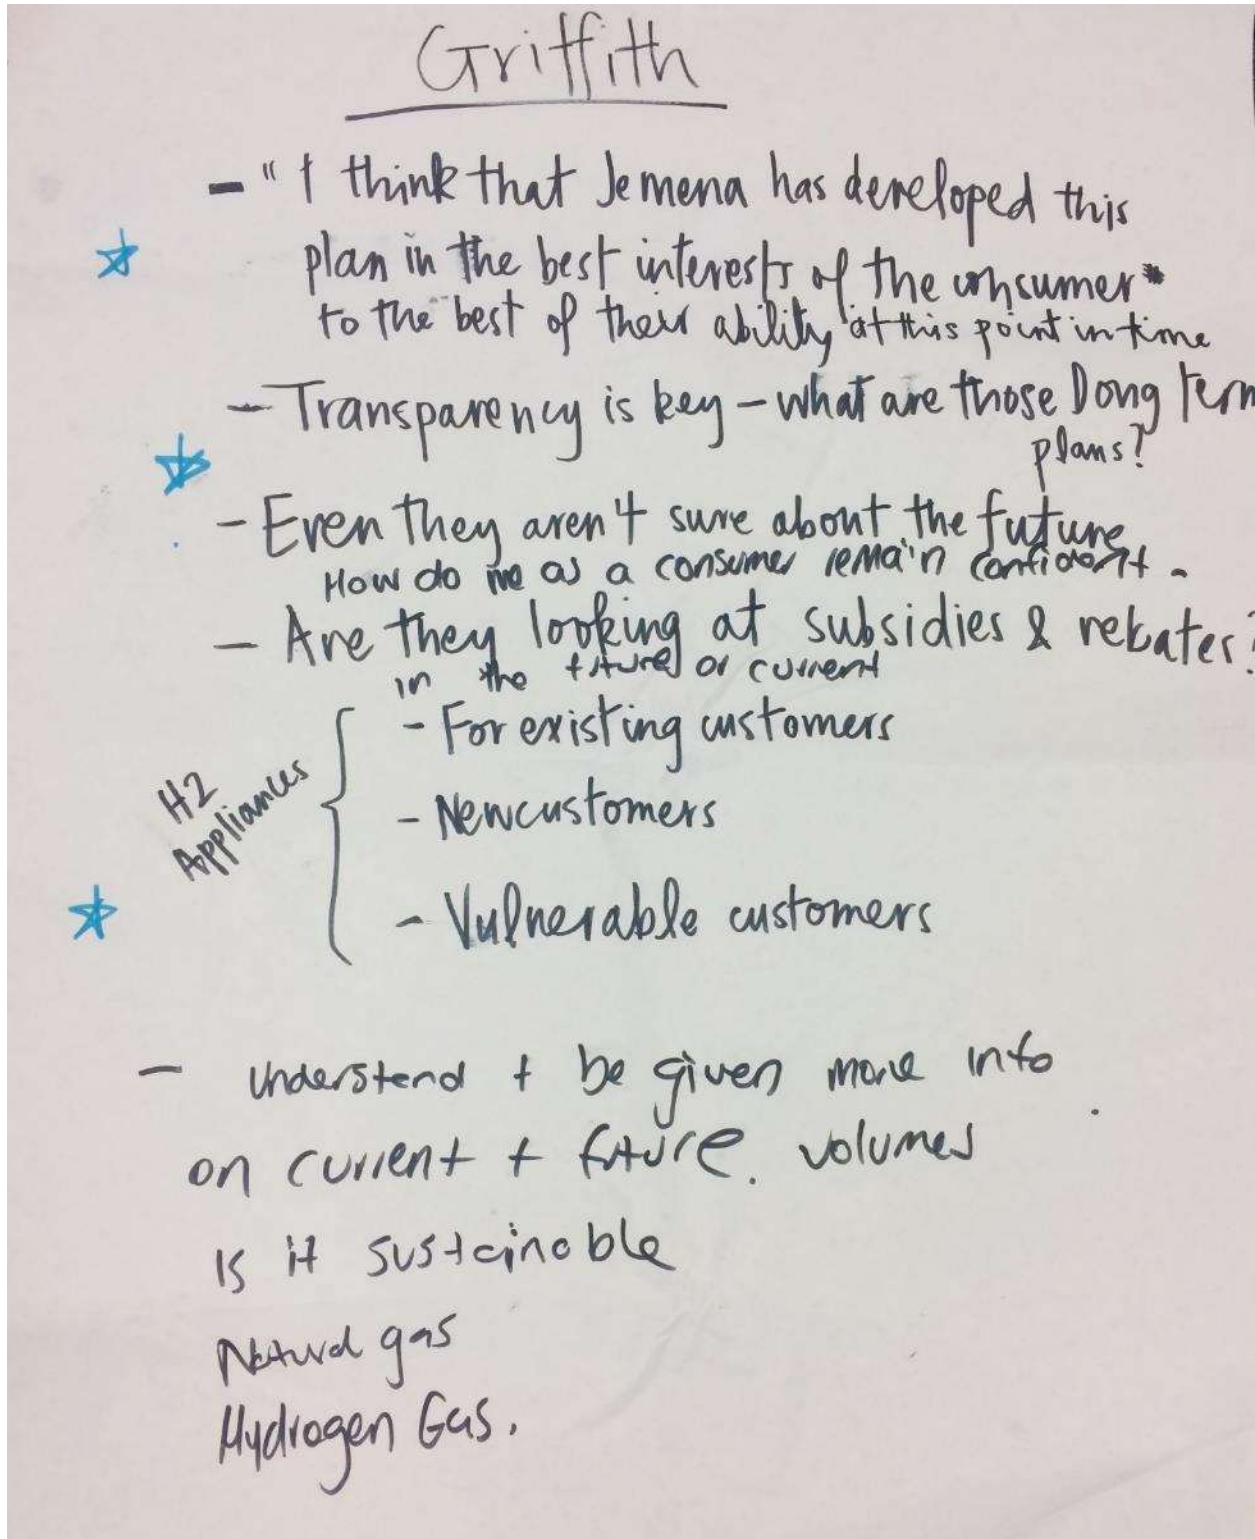 Griffith
- "I think that Jemena has developed this
plan in the best interests of the consumer"
to the best of their ability at this point in time
- Transparency is key - what are those long term
plans?
- Even they aren't sure about the future
How do we as a consumer remain confident.
- Are they looking at subsidies & rebates?
in the future or current
H2
Appliances
- For existing customers
- New customers
- Vulnerable customers
- Understand + be given more info
on current + future. volumes
Is it sustainable
Natural gas
Hydrogen Gas.